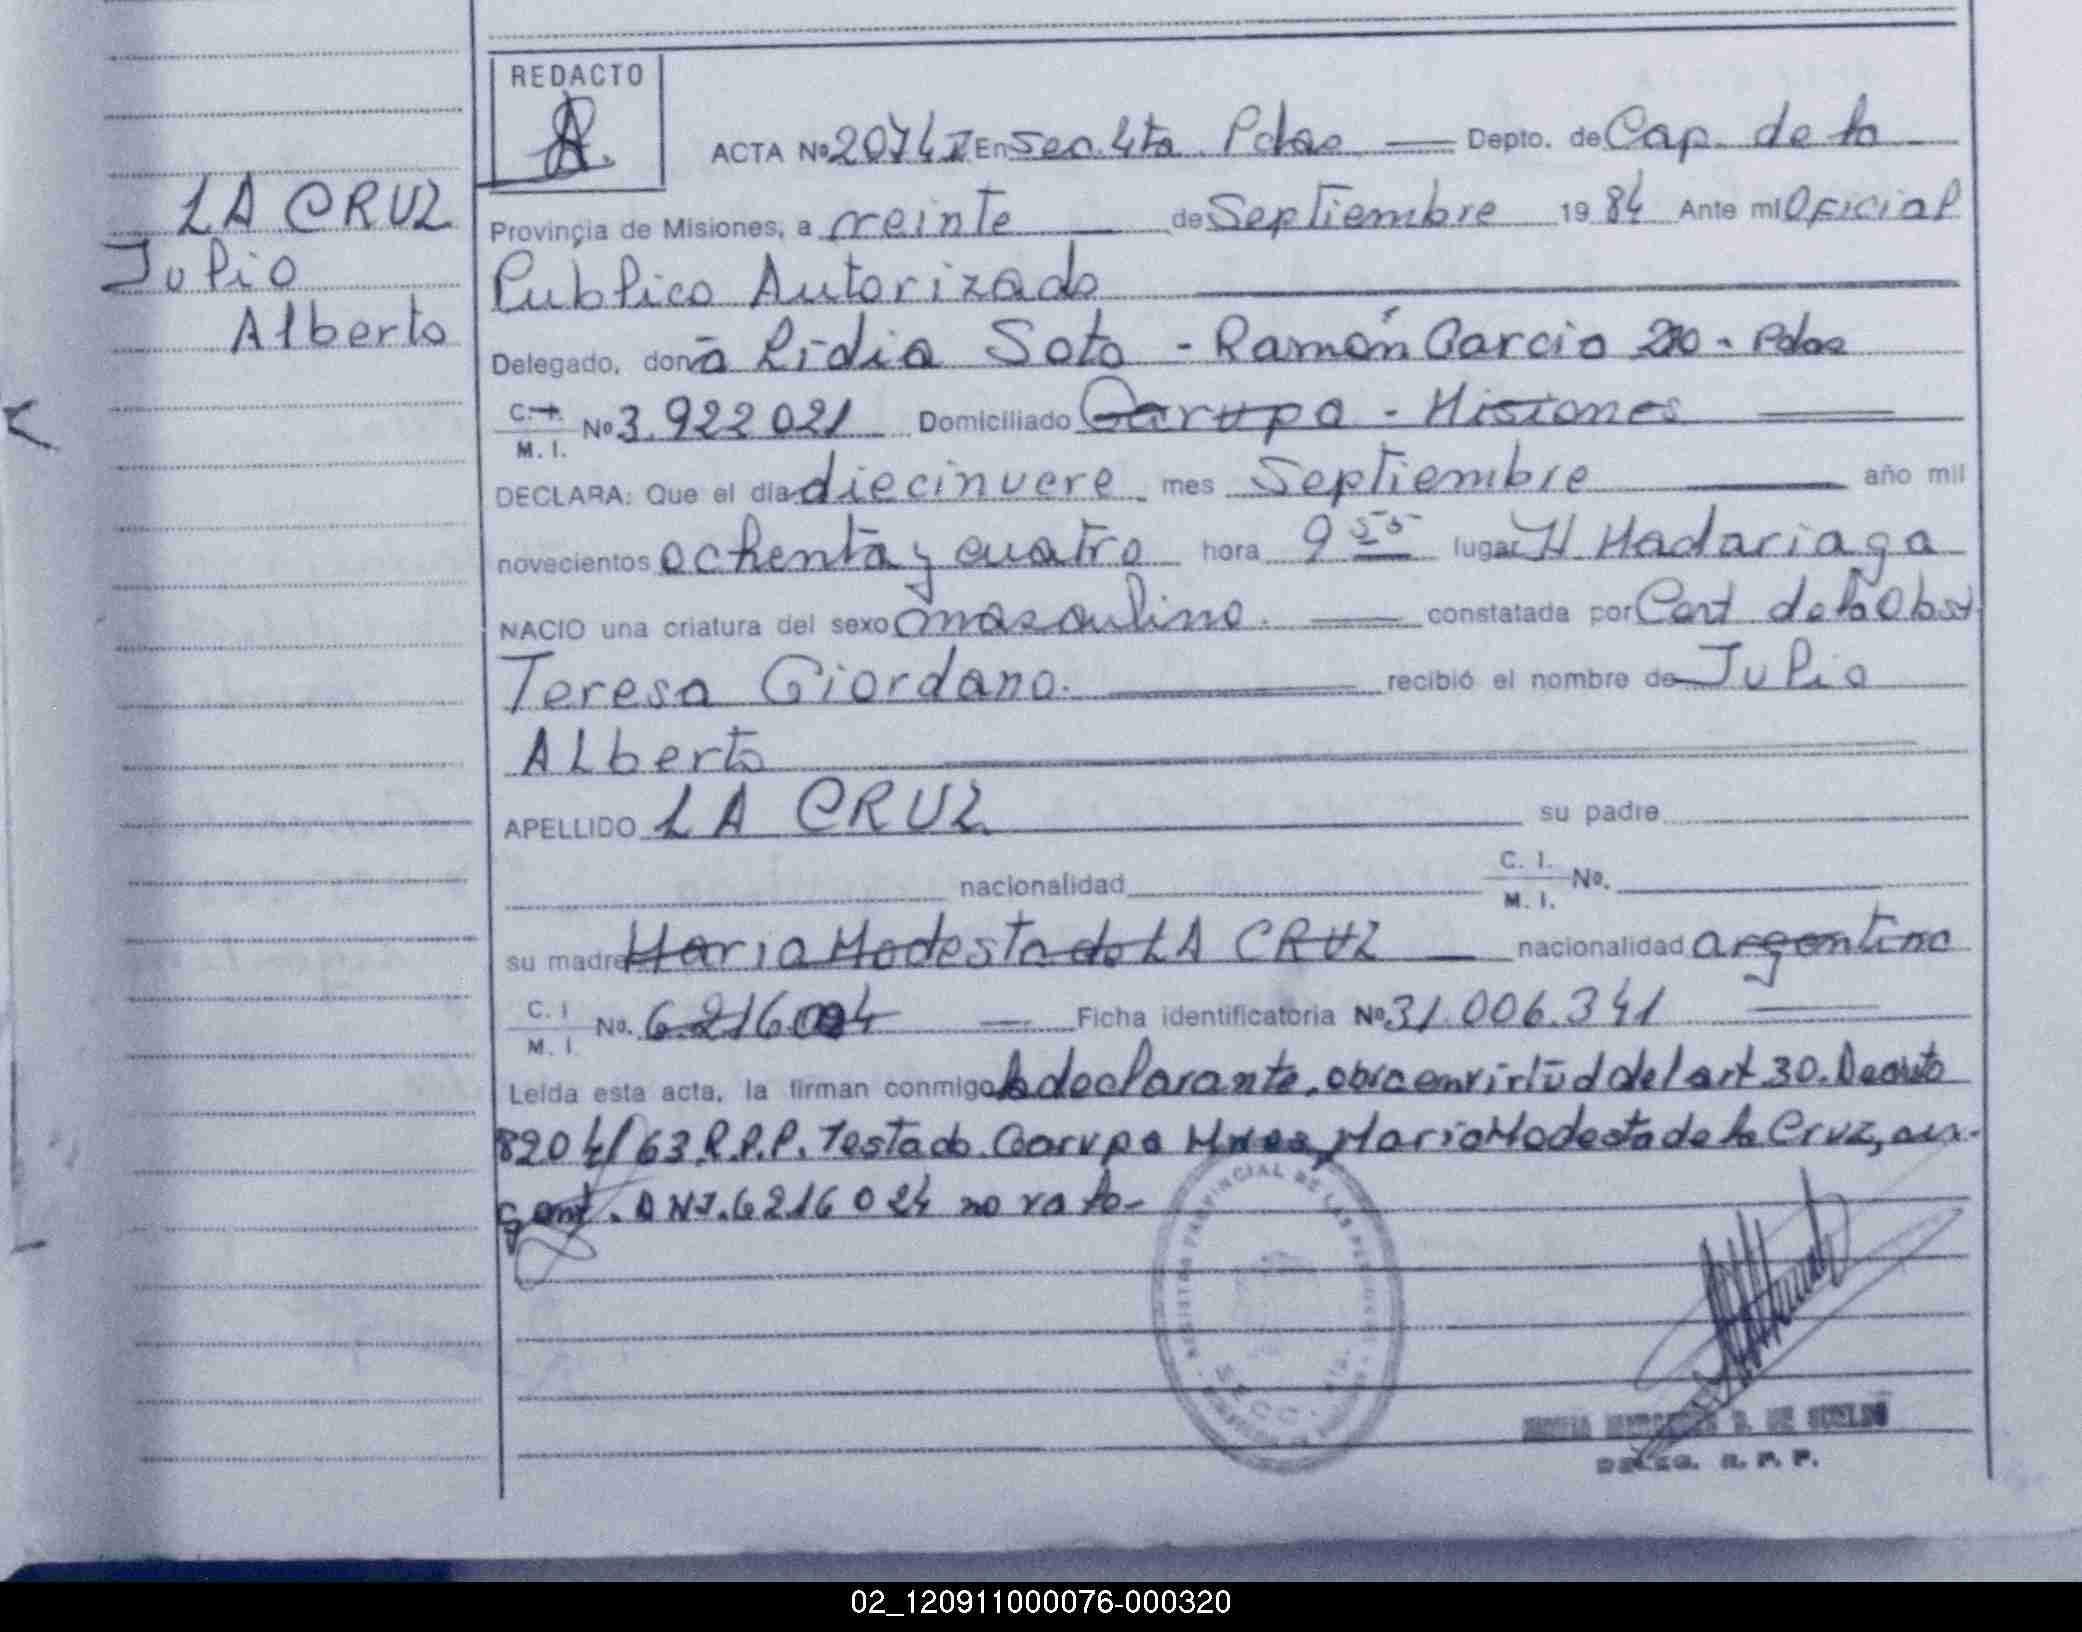 REDACTO
ACTA Nº 2074 I En Sec. 4ta Pdas Depto. de Cap. de la
LA CRUZ
Provincia de Misiones, a veinte de Septiembre 19 84 Ante mi Oficial
Julio
Publico Autorizado
Alberto
Delegado, don ña Lidia Soto - Ramón Garcia 210 - Pdas
C. I. M. I. Nº 3.922021 Domiciliado Garupa - Misiones
DECLARA: Que el día diecinueve mes Septiembre año mil
novecientos ochenta y cuatro hora 9 55 lugar H Madariaga
NACIO una criatura del sexo masculino. constatada por Cert de la Obst
Teresa Giordano. recibió el nombre de Julio
Alberto
APELLIDO LA CRUZ su padre
nacionalidad C. I. M. I. Nº.
su madre Maria Modesta de LA CRUZ nacionalidad argentina
C. I M. I. No. 6.216.024 Ficha identificatoria Nº 31.006.341
Leída esta acta, la firman conmigo la declarante, obra en virtud del art 30. Decreto
8204/63 R.P.P. Testado. Garupa Mnes, Maria Modesta de la Cruz, ar-
gent. DNI. 6216024 no vale-
REGISTRO PROVINCIAL DE LAS PERSONAS
SECC. 4ta.
DELEG. R. P. P.
02_120911000076-000320